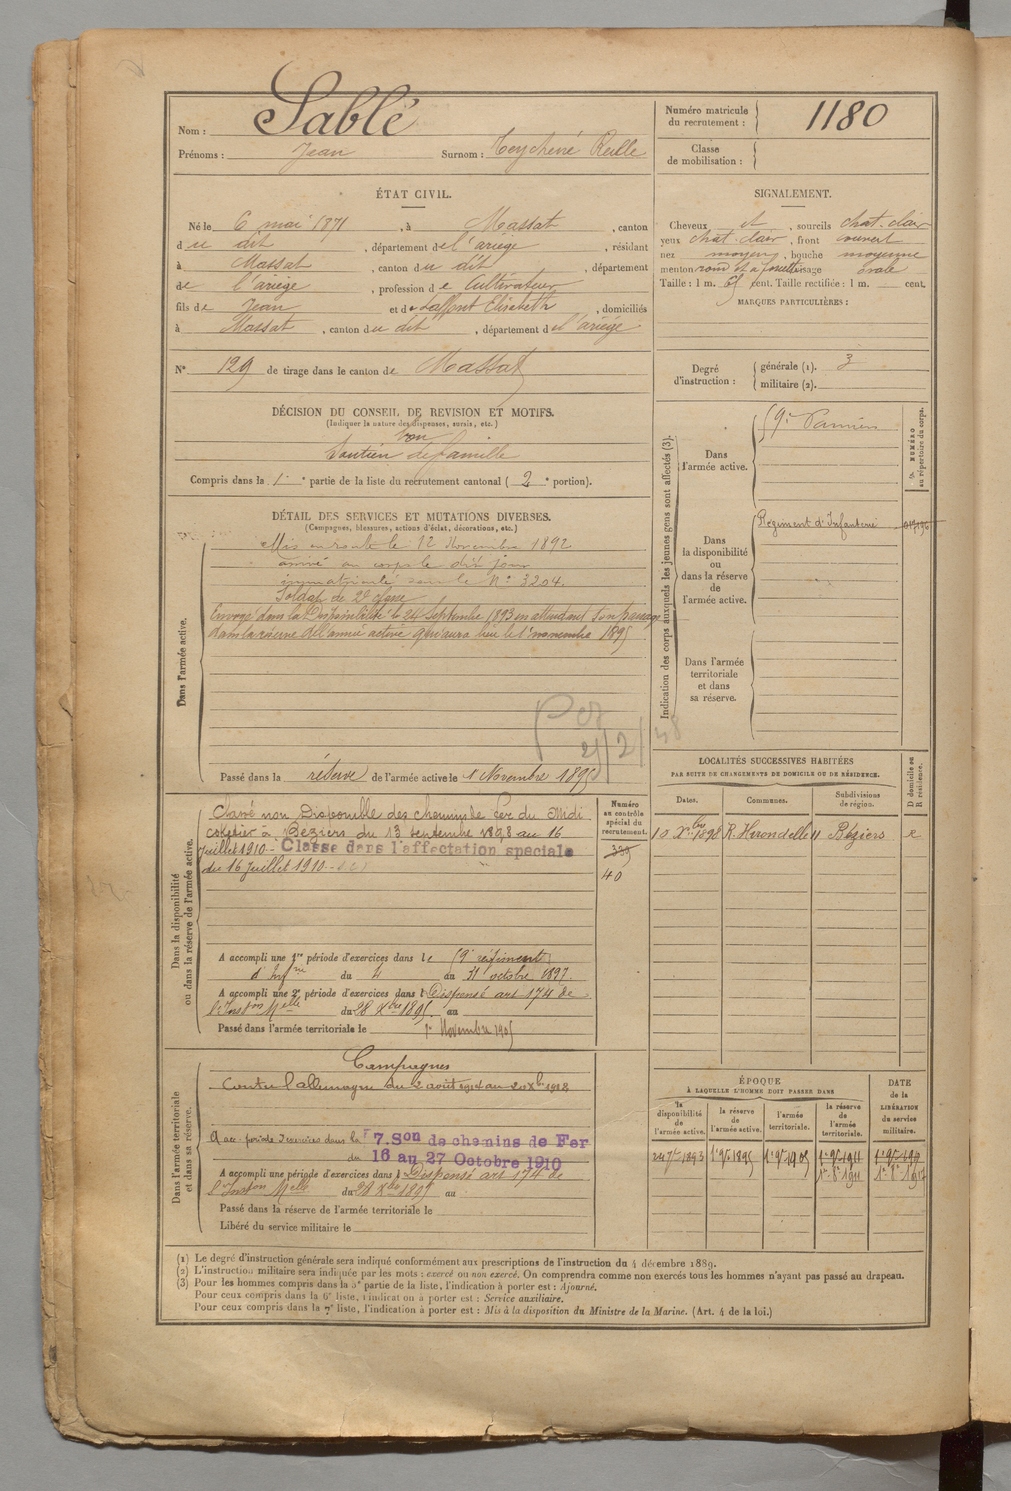 Nom : Sablé
Prénoms : Jean Surnom : Teychené Reille
Numéro matricule du recrutement : 1180
Classe de mobilisation :
ÉTAT CIVIL.
Né le 6 mai 1871, à Massat, canton
du dit, département de l'ariège, résidant
à Massat, canton du dit, département
de l'ariège, profession de Cultivateur
fils de Jean et de Laffont Elisabeth, domiciliés
à Massat, canton du dit, département de l'ariège.
N° 129 de tirage dans le canton de Massat
SIGNALEMENT.
Cheveux et, sourcils chat. clair
yeux chat. clair, front couvert
nez moyen, bouche moyenne
menton rond et à fossette visage ovale
Taille : 1 m. cent. Taille rectifiée : 1 m. cent.
MARQUES PARTICULIÈRES :
Degré d'instruction :
générale (1). 3
militaire (2).
DÉCISION DU CONSEIL DE REVISION ET MOTIFS.
(Indiquer la nature des dispenses, sursis, etc.)
bon
Soutien de famille
Compris dans la 1e partie de la liste du recrutement cantonal (2e portion).
DÉTAIL DES SERVICES ET MUTATIONS DIVERSES.
(Campagnes, blessures, actions d'éclat, décorations, etc.)
Dans l'armée active.
Mis en route le 12 Novembre 1892
arrivé au corps le dit jour
immatriculé sous le N° 3204.
Soldat de 2e classe
Envoyé dans la Disponibilité le 24 Septembre 1893 en attendant son passage
dans la réserve de l'armée active qui aura lieu le 1er novembre 1895
21/2/48
Passé dans la réserve de l'armée active le 1 Novembre 1895
Indication des corps auxquels les jeunes gens sont affectés (3).
Dans l'armée active.
Pamiers
NUMÉRO au répertoire du corps.
Dans la disponibilité ou dans la réserve de l'armée active.
Régiment d'Infanterie
Dans l'armée territoriale et dans sa réserve.
LOCALITÉS SUCCESSIVES HABITÉES
PAR SUITE DE CHANGEMENTS DE DOMICILE OU DE RÉSIDENCE.
Dates. Communes. Subdivisions de région. D domicile ou R résidence.
10 Xbre 1898 R. Hirondelle 11 Béziers R
Dans la disponibilité ou dans la réserve de l'armée active.
Numéro au contrôle spécial du recrutement.
40
Classé non Disponible des chemins de fer du Midi
à Béziers du 13 septembre 1898 au 16
Juillet 1910.- Classé dans l'affectation spéciale
du 16 Juillet 1910.-
A accompli une 1re période d'exercices dans le régiment
d'Infrie du 4 au 31 octobre 1897.
A accompli une 2e période d'exercices dans l Dispensé art 174 de
l'Inston Melle du 28 Xbre 1895. au
Passé dans l'armée territoriale le 1er Novembre 1905
Dans l'armée territoriale et dans sa réserve.
Campagnes
Contre l'allemagne du 2 août 1914 au 20 Xbre 1918
A acc. période d'exercices dans la 7. Son de chemins de Fer
du 16 au 27 Octobre 1910
A accompli une période d'exercices dans l Dispensé art 174 de
l'Inston Melle du 28 Xbre 1895 au
Passé dans la réserve de l'armée territoriale le
Libéré du service militaire le
ÉPOQUE
À LAQUELLE L'HOMME DOIT PASSER DANS
la disponibilité de l'armée active. la réserve de l'armée active. l'armée territoriale. la réserve de l'armée territoriale.
DATE de la LIBÉRATION du service militaire.
24 7bre 1893 1er 9bre 1895 1er 9bre 1905 1er 9bre 1911
(1) Le degré d'instruction générale sera indiqué conformément aux prescriptions de l'instruction du 4 décembre 1889.
(2) L'instruction militaire sera indiquée par les mots : exercé ou non exercé. On comprendra comme non exercés tous les hommes n'ayant pas passé au drapeau.
(3) Pour les hommes compris dans la 5e partie de la liste, l'indication à porter est : Ajourné.
Pour ceux compris dans la 6e liste, l'indication à porter est : Service auxiliaire.
Pour ceux compris dans la 7e liste, l'indication à porter est : Mis à la disposition du Ministre de la Marine. (Art. 4 de la loi.)